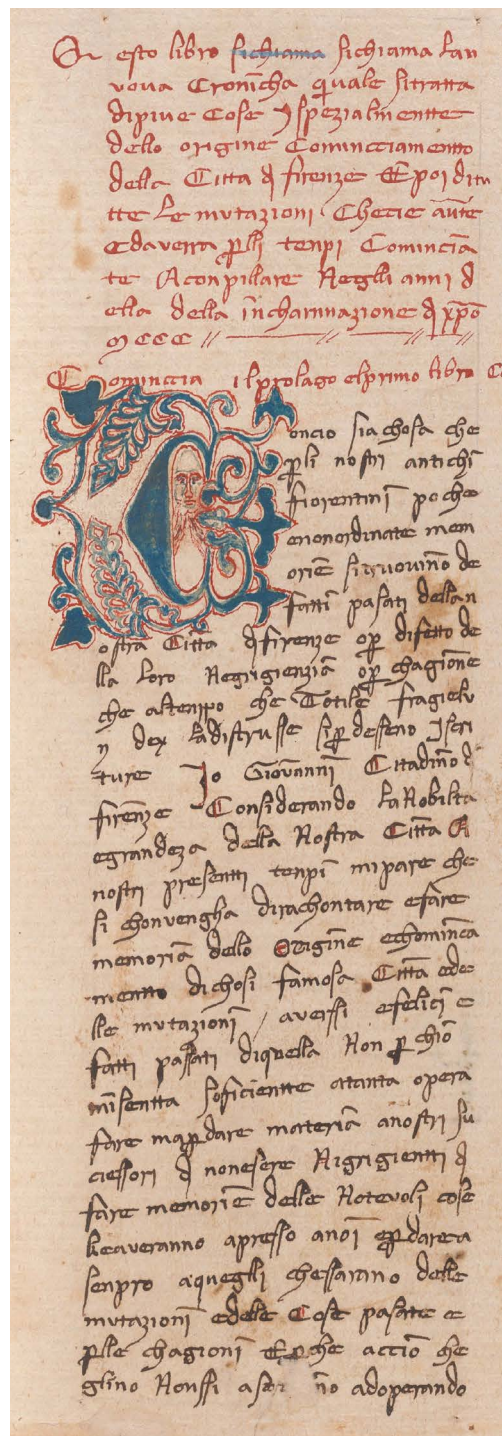 Questo libro sichiama sichiama lan
vova Cronicha qvale sitratta
dipiue Cose Ispezialmentte
dello origine Comincciamento
della Citta di firenze E poi ditu
tte Le mvtazioni Checie avute
E daverra perlli tenpi Comincia
te A conpillare Neglli anni d
ella della incharnnazione di xpo
MCCC
Cominccia ilprolago elprimo libro
Concio sia chosa che
perli nostri antichi
fiorentini poche
enonordinate mem
orie si truovino de
fatti pasati dellan
ostra Citta di firenze oper difetto de
lla loro Negrigienzia oper chagione
che altenpo che Totile fragielv
n dey ladistrusse siperdesseno Iscri
tture Io Giovanni Cittadino di
firenze Considerando laNobilta
egrandeza della Nostra Citta Ai
nostri presentti tenpi mipare che
si chonvengha dirachontare efare
memoria dello Origine echominca
mentto dichosi famosa Citta ede
lle mvtazioni averssi efelici e
fatti passati diquella Non perchio
misentta soficientte atanta opera
fare maperdare materia anostri su
ciessori di nonesere Nigrigientti di
fare memorie delle Notevoli cose
licaveranno apresso anoi eperdarea
senpro aqueglli chessarano delle
mvtazioni edele Cose pasate e
perlle chagioni Eperche accio che
glino Nonssi adoperando